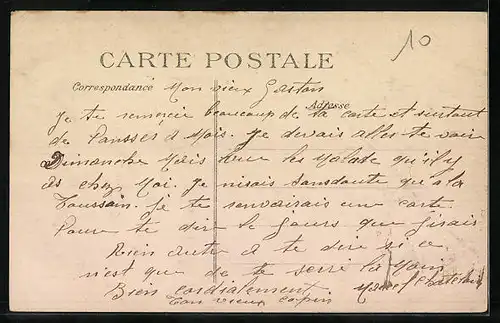 10
CARTE POSTALE
Correspondance
Adresse
Mon vieux Gaston
Je te remercie beaucoup de la carte et surtout
de Pansser a Mois. Je devais alles te voir
Dimanche Mais les Malade qu'il y
as chez Moi. Je n'irais sansdoute qu'a la
Toussain. Je te renvairais une carte
Pour te dire le Jours que J'irais
Rien autre a te dire si ce
n'est que de te serré la Main
Bien cordialement
Ton vieux copin